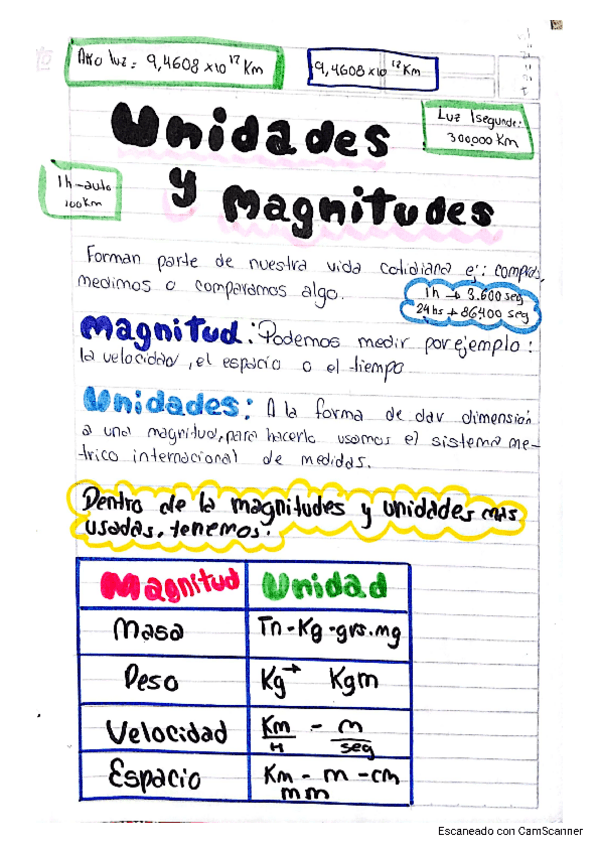 Año luz = 9,4608 x 10¹² Km
9,4608 x 10¹² Km
Luz 1 segundo:
300.000 Km
Unidades
1h - auto
100 Km
y Magnitudes
Forman parte de nuestra vida cotidiana ej: compras,
medimos o comparamos algo.
1h → 3.600 seg
24hs → 86.400 seg
Magnitud: Podemos medir por ejemplo:
la velocidad, el espacio o el tiempo
Unidades: A la forma de dar dimensión
a una magnitud, para hacerlo usamos el sistema me-
trico internacional de medidas.
Dentro de la magnitudes y unidades mas
usadas, tenemos:
Magnitud Unidad
Masa Tn - Kg - grs. mg
Peso Kg→ Kgm
Velocidad Km/H - m/seg
Espacio Km - m - cm
mm
Escaneado con CamScanner